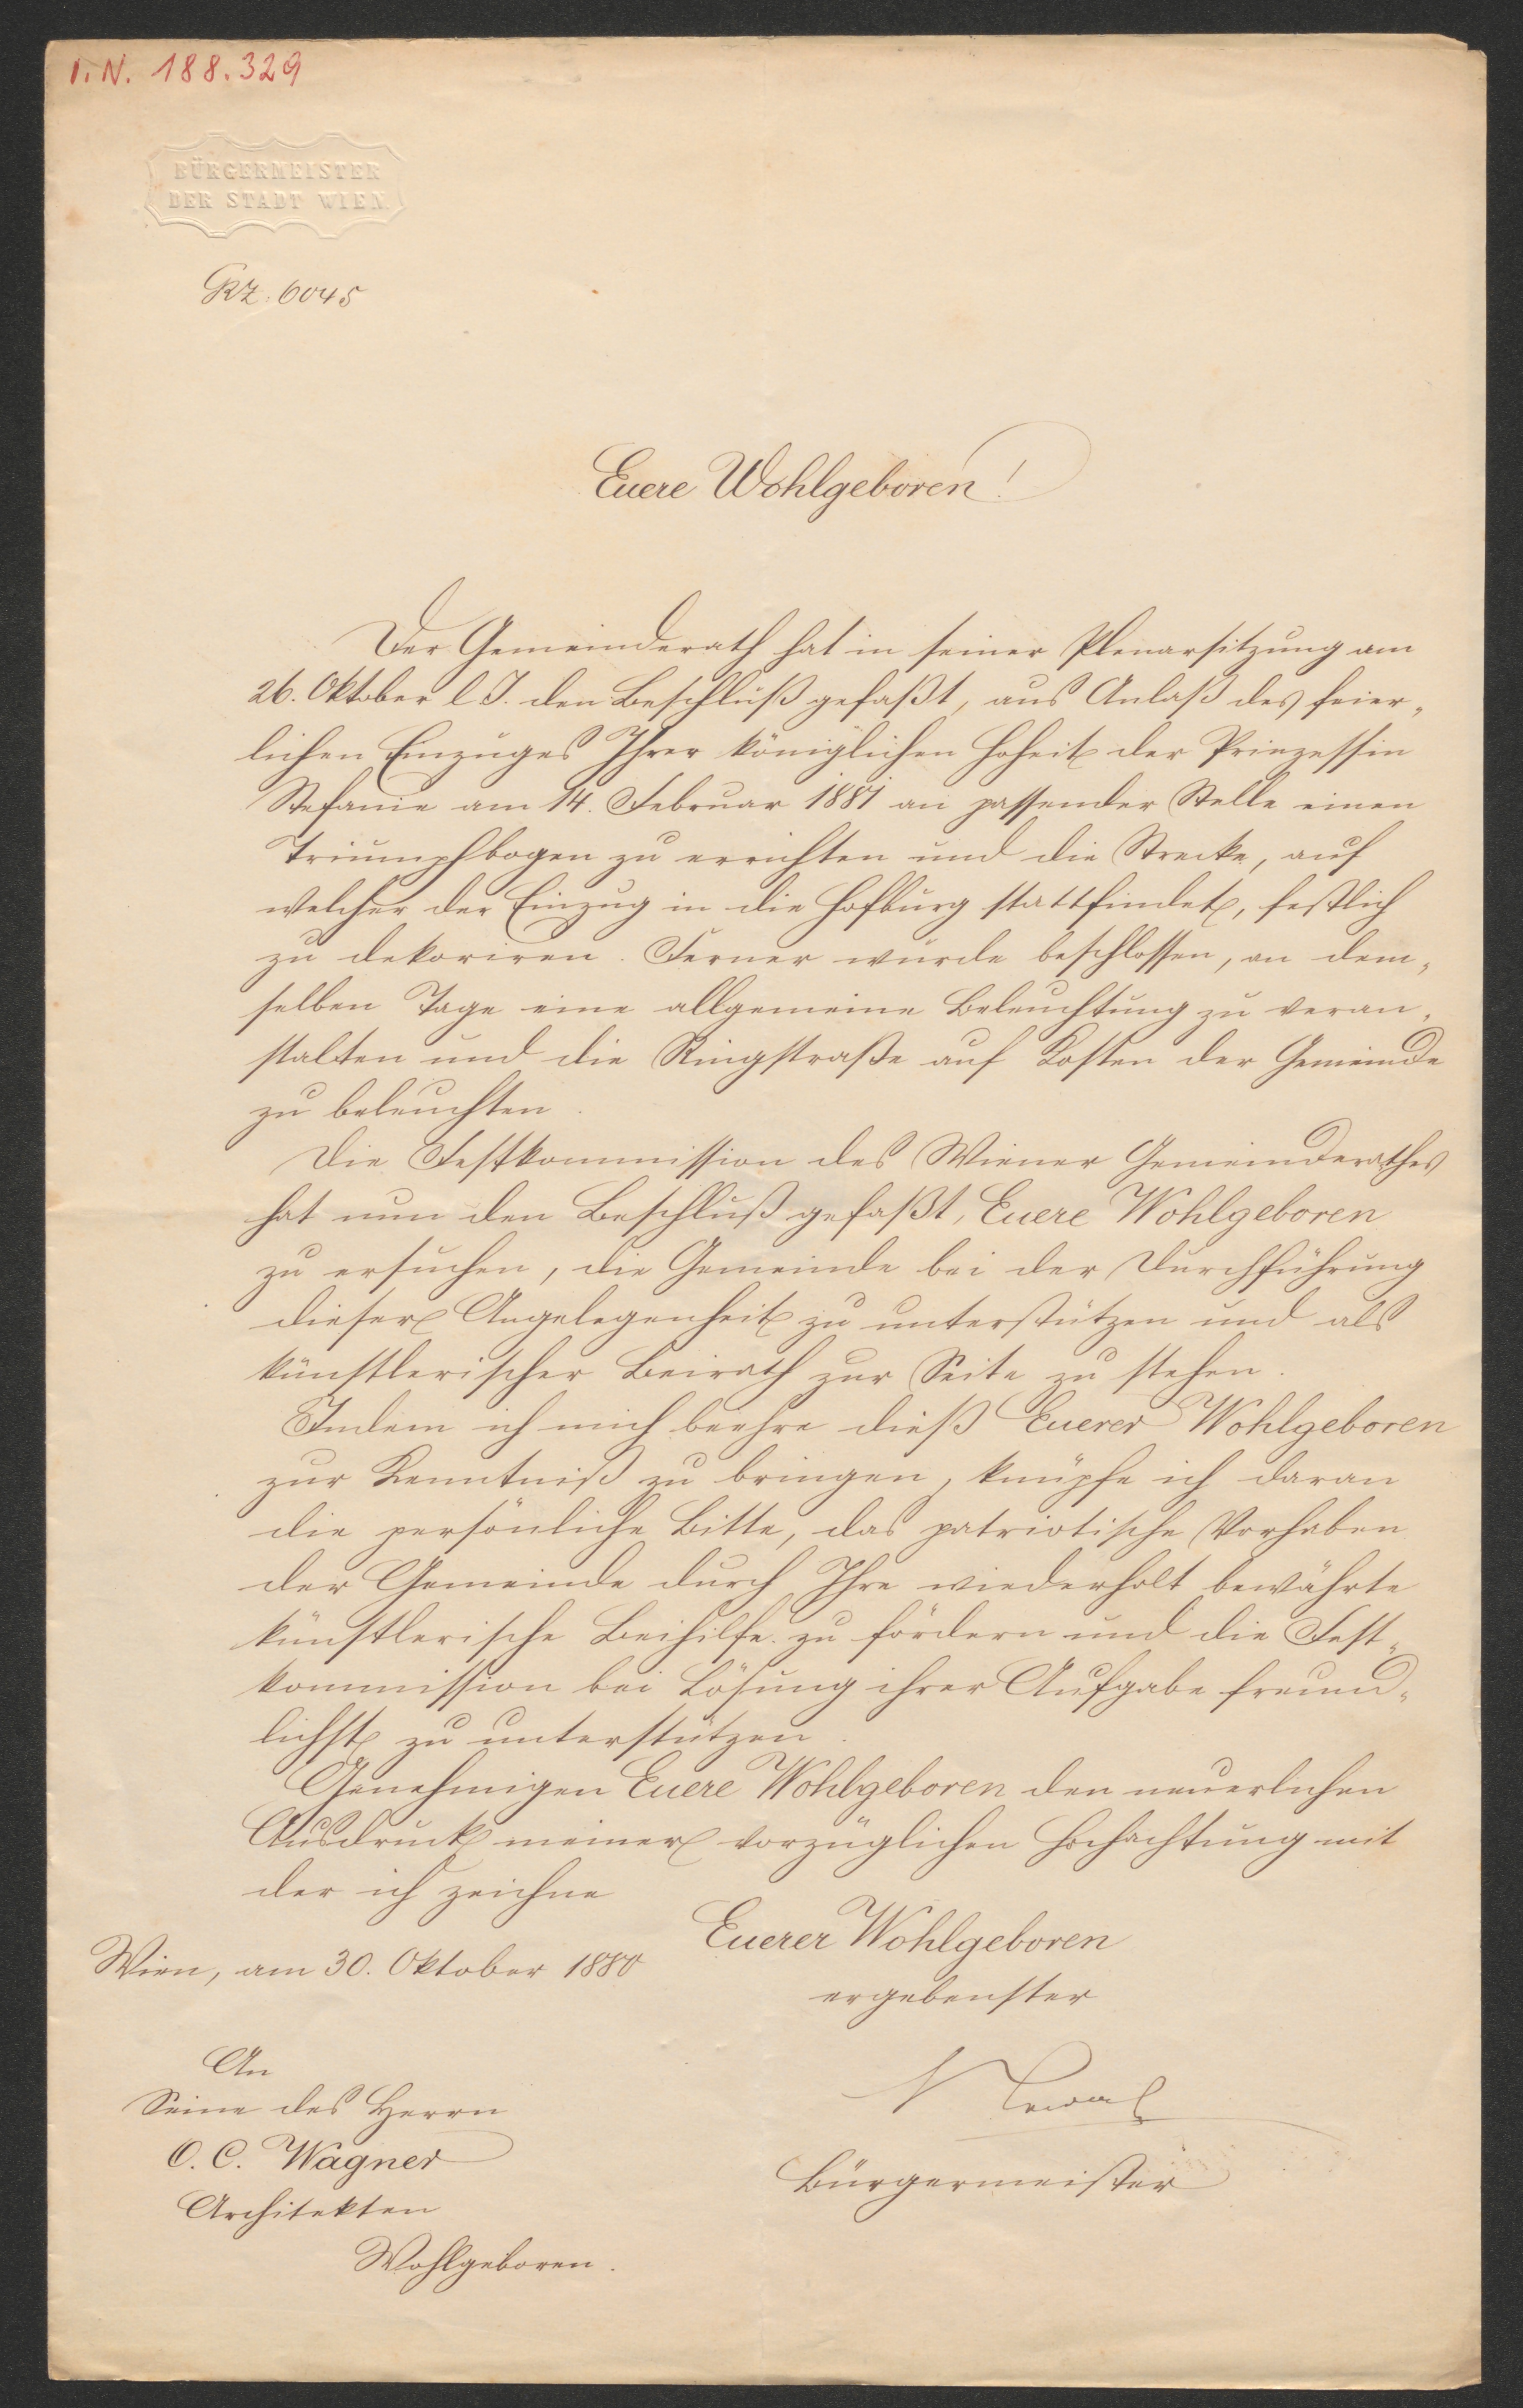 I. N. 188.329
BÜRGERMEISTER
DER STADT WIEN.
GRZ. 6045
Euere Wohlgeboren!
Der Gemeinderath hat in seiner Plenarsitzung am
26. Oktober l. J. den Beschluß gefaßt, aus Anlaß des feier„
lichen Einzuges Ihrer königlichen Hoheit der Prinzessin
Stefanie am 14. Februar 1881 an passender Stelle einen
Triumphbogen zu errichten und die Strecke, auf
welcher der Einzug in die Hofburg stattfindet, festlich
zu dekoriren. Ferner wurde beschlossen, an dem„
selben Tage eine allgemeine Beleuchtung zu veran„
stalten und die Ringstraße auf Kosten der Gemeinde
zu beleuchten.
Die Festkommission des Wiener Gemeinderathes
hat nun den Beschluß gefaßt, Euere Wohlgeboren
zu ersuchen, die Gemeinde bei der Durchführung
dieser Angelegenheit zu unterstützen und als
künstlerischer Beirath zur Seite zu stehen.
Indem ich mich beehre dieß Euerer Wohlgeboren
zur Kenntniß zu bringen, knüpfe ich daran
die persönliche Bitte, das patriotische Vorhaben
der Gemeinde durch Ihre wiederholt bewährte
künstlerische Beihilfe zu fördern und die Fest„
kommission bei Lösung ihrer Aufgabe freund„
lichst zu unterstützen.
Genehmigen Euere Wohlgeboren den neuerlichen
Ausdruck meiner vorzüglichen Hochachtung mit
der ich zeichne
Euerer Wohlgeboren
Wien, am 30. Oktober 1880
ergebenster
An
Seine des Herrn
O. C. Wagner
Bürgermeister
Architekten
Wohlgeboren.